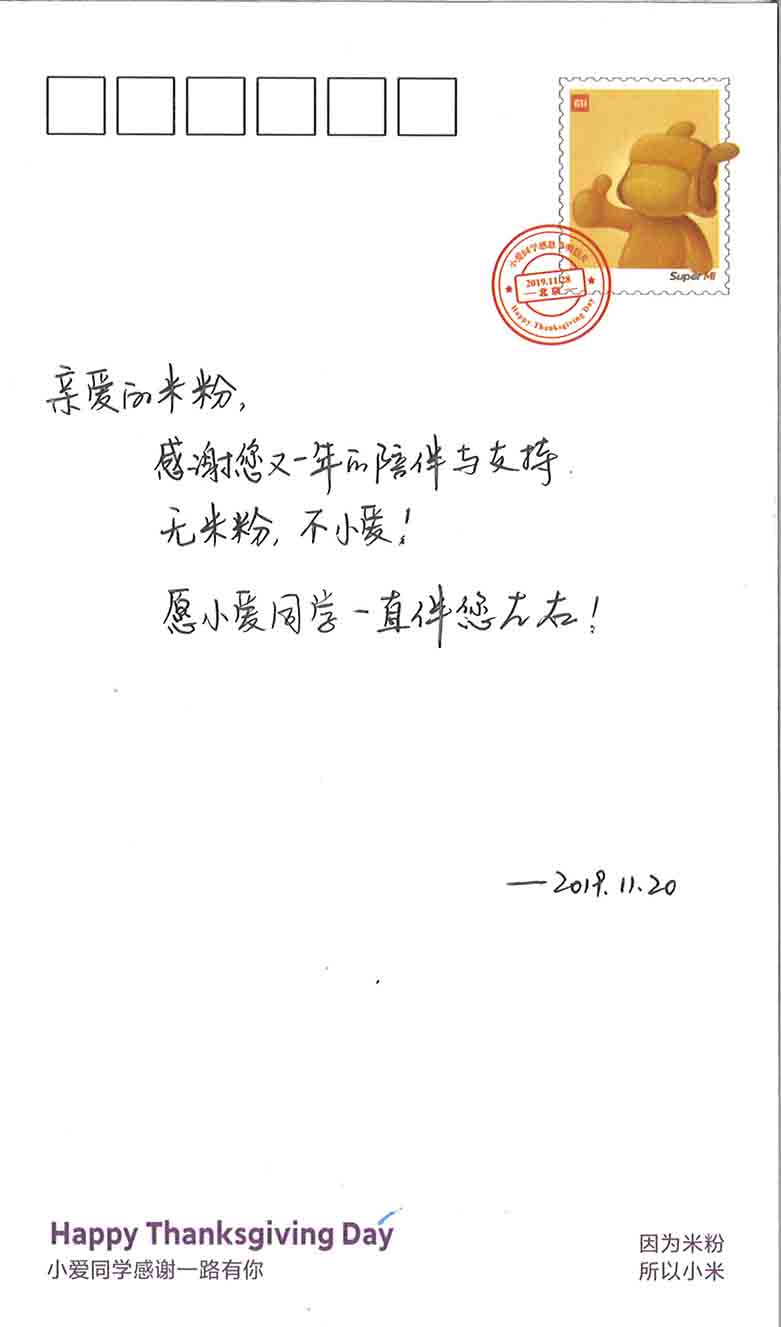 Super MI
小爱同学感恩节明信片
2019.11.28
北京
Happy Thanksgiving Day
亲爱的米粉,
感谢您又一年的陪伴与支持.
无米粉,不小爱!
愿小爱同学一直伴您左右!
—2019.11.20
Happy Thanksgiving Day
小爱同学感谢一路有你
因为米粉
所以小米